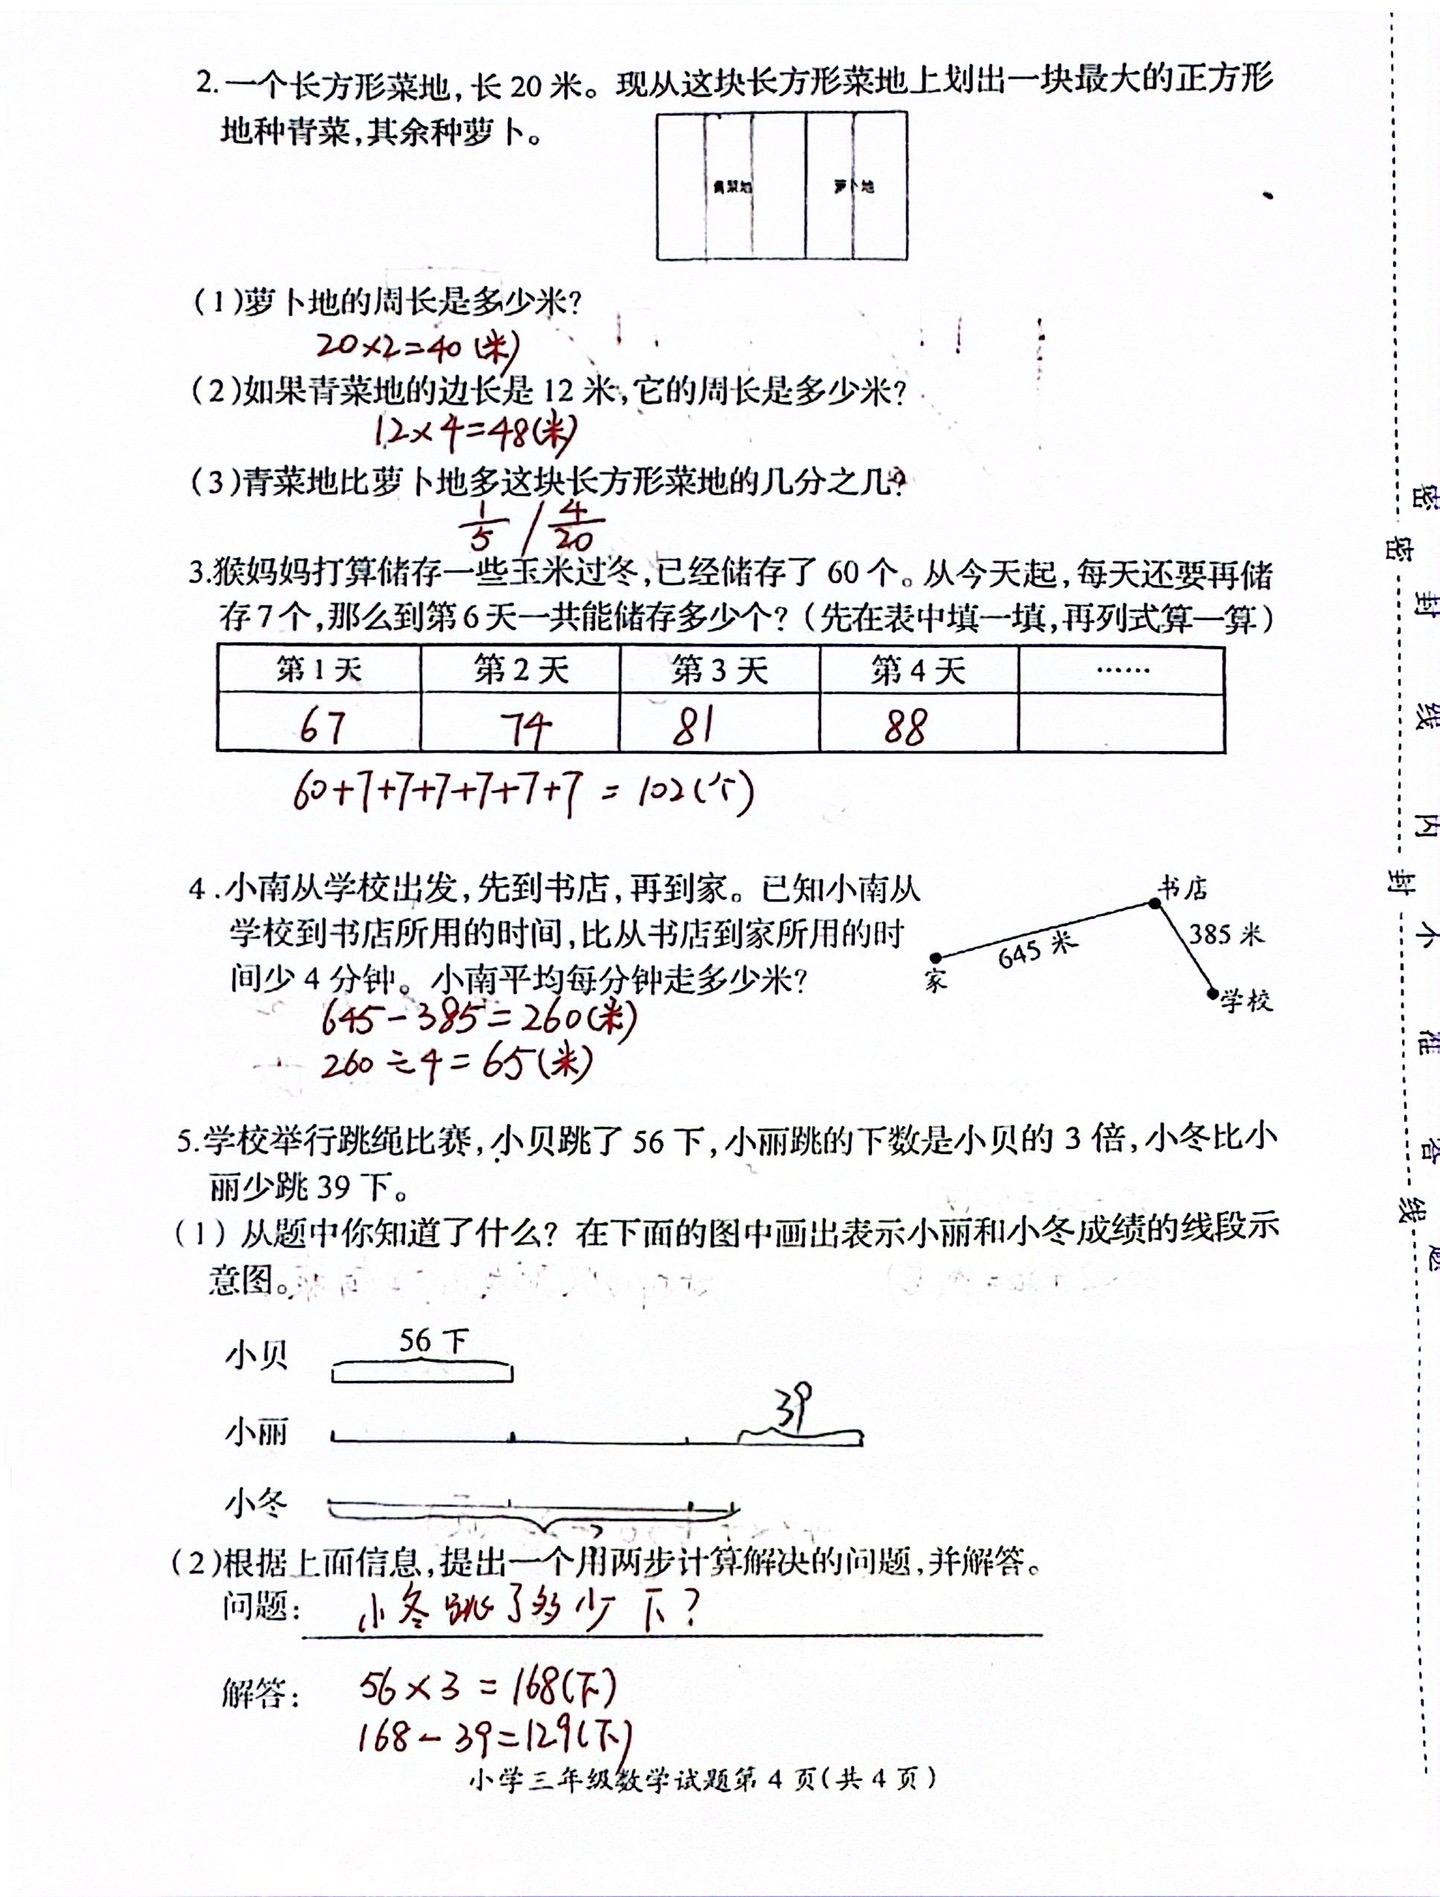 2.一个长方形菜地,长20米。现从这块长方形菜地上划出一块最大的正方形
地种青菜,其余种萝卜。
青菜地 萝卜地
(1)萝卜地的周长是多少米?
20×2=40(米)
(2)如果青菜地的边长是12米,它的周长是多少米?
12×4=48(米)
(3)青菜地比萝卜地多这块长方形菜地的几分之几?
1/5 / 4/20
3.猴妈妈打算储存一些玉米过冬,已经储存了60个。从今天起,每天还要再储
存7个,那么到第6天一共能储存多少个?(先在表中填一填,再列式算一算)
第1天 第2天 第3天 第4天 ……
67 74 81 88
60+7+7+7+7+7+7=102(个)
4.小南从学校出发,先到书店,再到家。已知小南从
学校到书店所用的时间,比从书店到家所用的时
间少4分钟。小南平均每分钟走多少米?
书店
645米
385米
家
学校
645-385=260(米)
260÷4=65(米)
5.学校举行跳绳比赛,小贝跳了56下,小丽跳的下数是小贝的3倍,小冬比小
丽少跳39下。
(1)从题中你知道了什么?在下面的图中画出表示小丽和小冬成绩的线段示
意图。
56下
小贝
39
小丽
小冬
?
(2)根据上面信息,提出一个用两步计算解决的问题,并解答。
问题:小冬跳了多少下?
解答:56×3=168(下)
168-39=129(下)
小学三年级数学试题第4页(共4页)
密 封 线
密 封 线 内 不 准 答 题